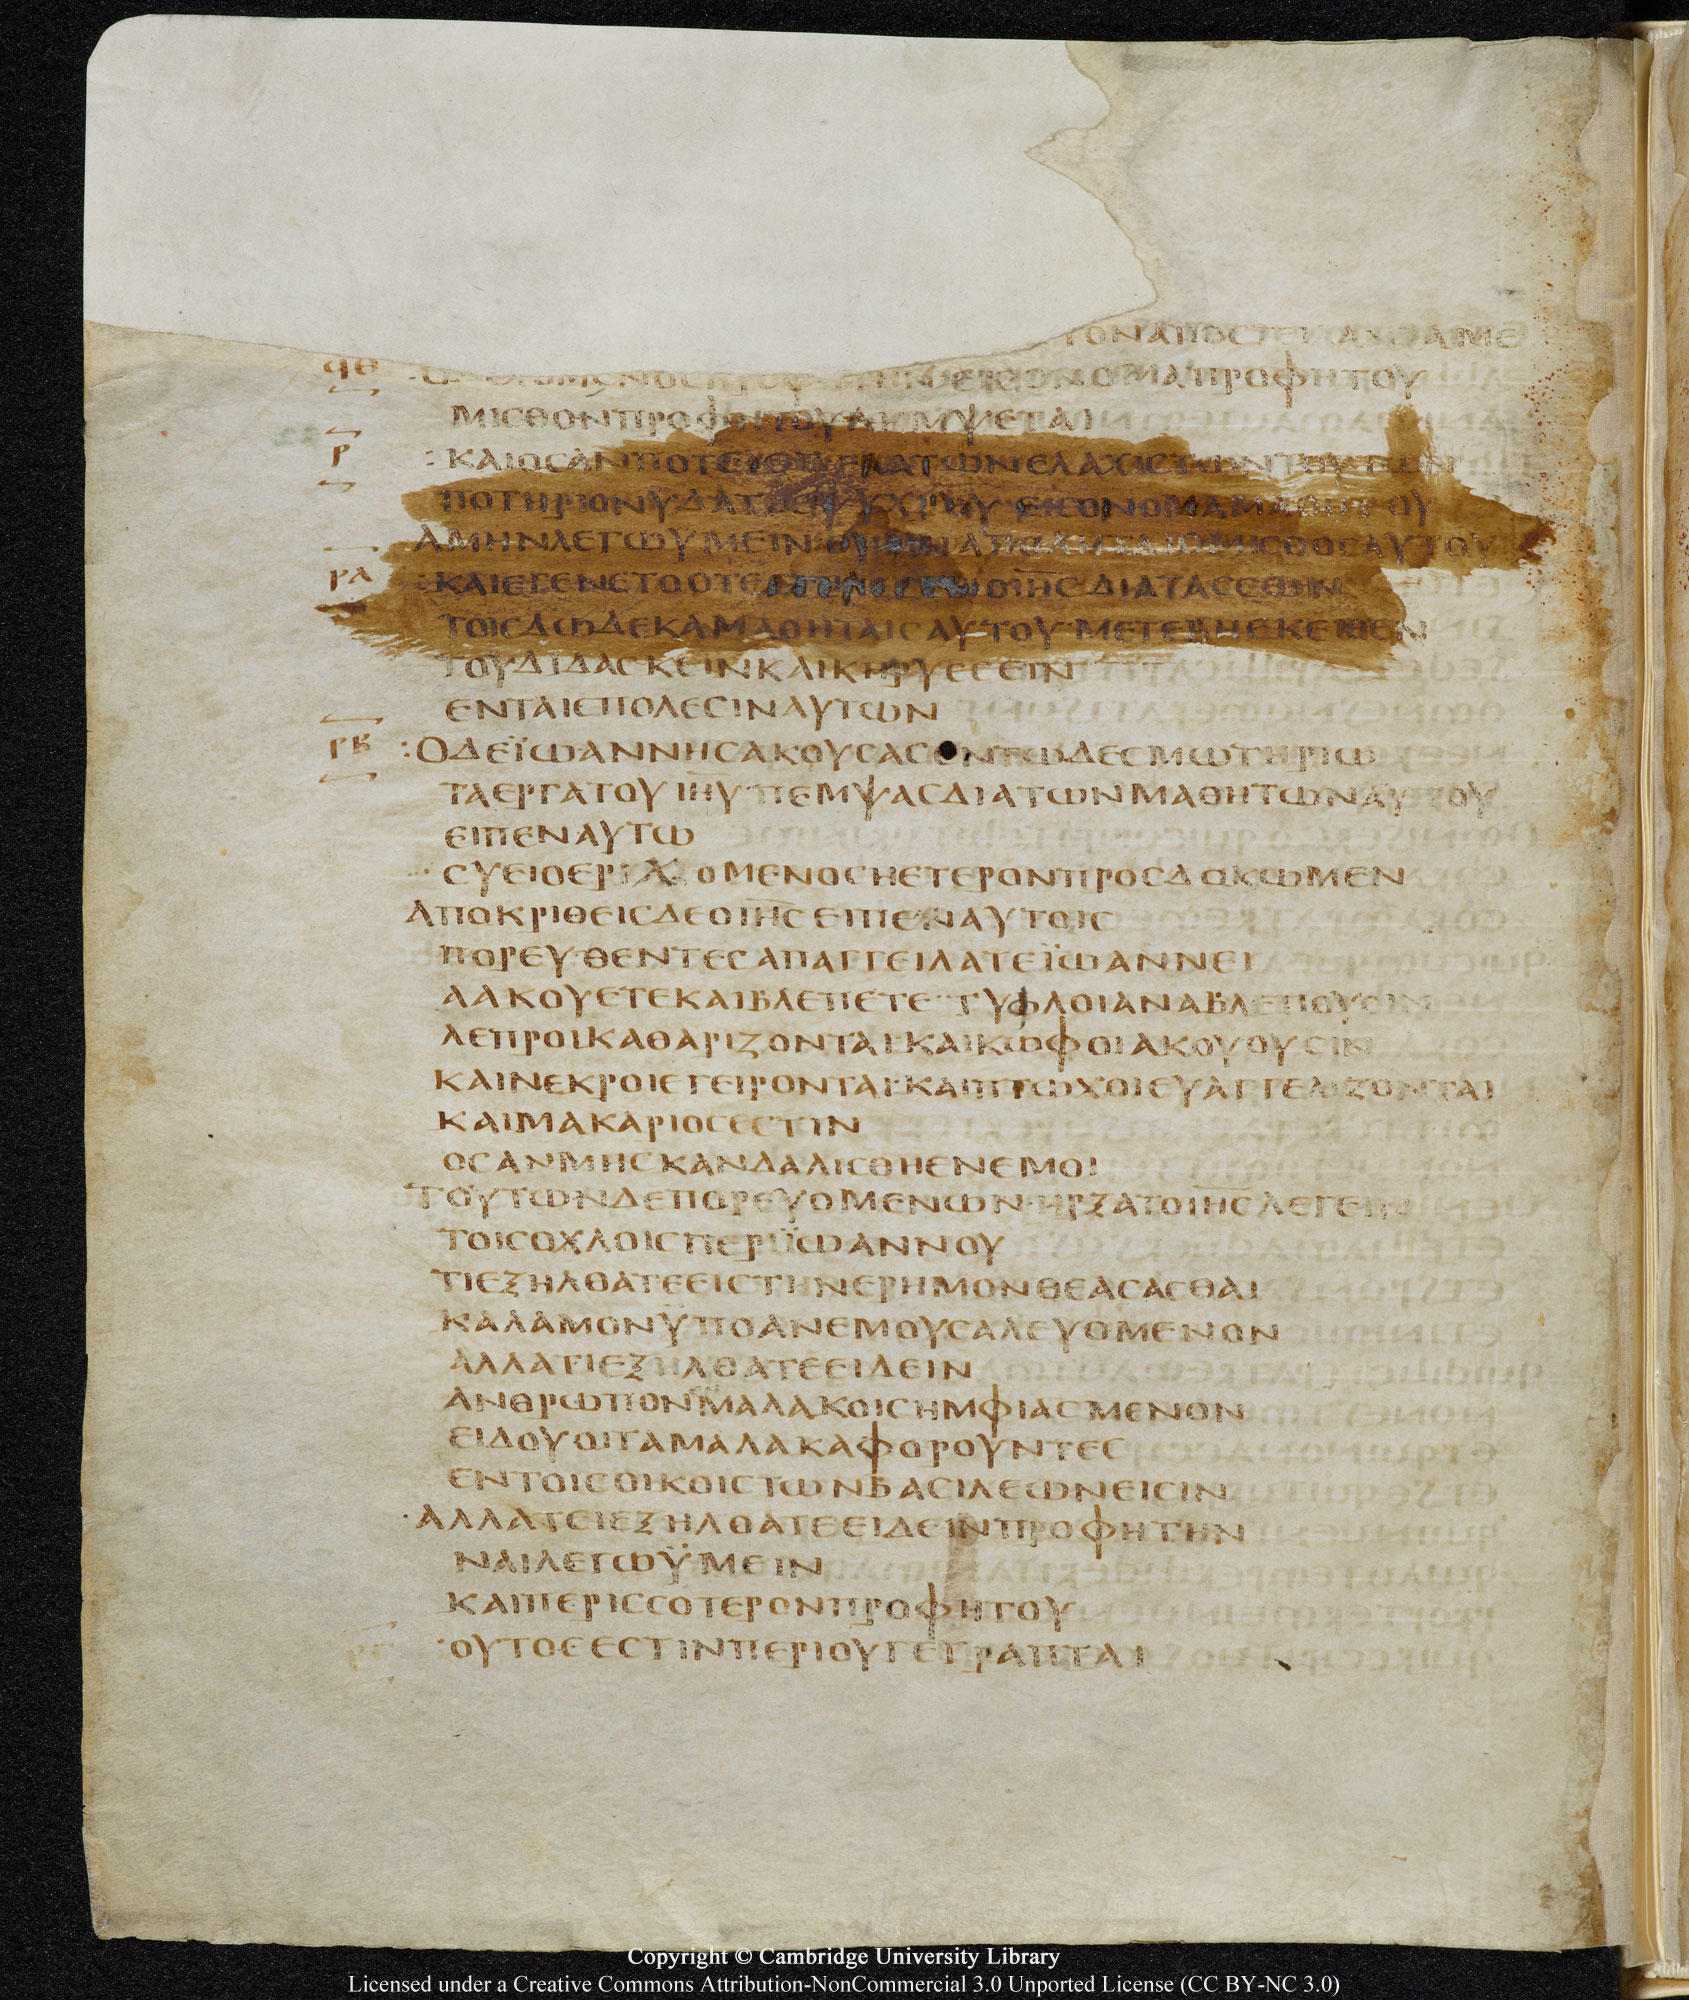 ΤΟΝΑΠΟΣΤΕΙΛΑΝΤΑΜΕ
ϥΘ Ο ΔΕΧΟΜΕΝΟϹΠΡΟΦΗΤΗΝ ΕΙϹΟΝΟΜΑΠΡΟΦΗΤΟΥ
ΜΙϹΘΟΝΠΡΟΦΗΤΟΥΛΗΜΨΕΤΑΙ
Ρ :ΚΑΙΟϹΑΝΠΟΤΕΙϹΗΕΝΑΤΩΝΕΛΑΧΙϹΤΩΝΤΟΥΤΩΝ
ΠΟΤΗΡΙΟΝΥΔΑΤΟϹΨΥΧΡΟΥ ΕΙϹΟΝΟΜΑΜΑΘΗΤΟΥ
ΑΜΗΝΛΕΓΩΥΜΕΙΝ ΟΥΜΗ ΑΠΟΛΗΤΑΙΟΜΙϹΘΟϹΑΥΤΟΥ
ΡΑ :ΚΑΙΕΓΕΝΕΤΟΟΤΕ ΟΙΗϹ ΔΙΑΤΑϹϹΩΝ
ΤΟΙϹΔΩΔΕΚΑΜΑΘΗΤΑΙϹΑΥΤΟΥ ΜΕΤΕΒΗΕΚΕΙΘΕΝ
ΤΟΥΔΙΔΑϹΚΕΙΝΚΑΙΚΗΡΥϹϹΕΙΝ
ΕΝΤΑΙϹΠΟΛΕϹΙΝΑΥΤΩΝ
ΡΒ :ΟΔΕΪΩΑΝΝΗϹΑΚΟΥϹΑϹΕΝΤΩΔΕϹΜΩΤΗΡΙΩ
ΤΑΕΡΓΑΤΟΥΙΗΥ ΠΕΜΨΑϹΔΙΑΤΩΝΜΑΘΗΤΩΝΑΥΤΟΥ
ΕΙΠΕΝΑΥΤΩ
ϹΥΕΙΟΕΡΧΟΜΕΝΟϹΗΕΤΕΡΟΝΠΡΟϹΔΟΚΩΜΕΝ
ΑΠΟΚΡΙΘΕΙϹΔΕΟΙΗϹΕΙΠΕΝΑΥΤΟΙϹ
ΠΟΡΕΥΘΕΝΤΕϹΑΠΑΓΓΕΙΛΑΤΕΪΩΑΝΝΕΙ
ΑΑΚΟΥΕΤΕΚΑΙΒΛΕΠΕΤΕ ΤΥΦΛΟΙΑΝΑΒΛΕΠΟΥϹΙΝ
ΛΕΠΡΟΙΚΑΘΑΡΙΖΟΝΤΑΙ ΚΑΙΚΩΦΟΙΑΚΟΥΟΥϹΙΝ
ΚΑΙΝΕΚΡΟΙΕΓΕΙΡΟΝΤΑΙ ΚΑΙΠΤΩΧΟΙΕΥΑΓΓΕΛΙΖΟΝΤΑΙ
ΚΑΙΜΑΚΑΡΙΟϹΕϹΤΙΝ
ΟϹΑΝΜΗϹΚΑΝΔΑΛΙϹΘΗΕΝΕΜΟΙ
ΤΟΥΤΩΝΔΕΠΟΡΕΥΟΜΕΝΩΝ ΗΡΞΑΤΟΙΗϹΛΕΓΕΙΝ
ΤΟΙϹΟΧΛΟΙϹΠΕΡΙΪΩΑΝΝΟΥ
ΤΙΕΞΗΛΘΑΤΕΕΙϹΤΗΝΕΡΗΜΟΝΘΕΑϹΑϹΘΑΙ
ΚΑΛΑΜΟΝΫΠΟΑΝΕΜΟΥϹΑΛΕΥΟΜΕΝΟΝ
ΑΛΛΑΤΙΕΞΗΛΘΑΤΕΕΙΔΕΙΝ
ΑΝΘΡΩΠΟΝΜΑΛΑΚΟΙϹΗΜΦΙΑϹΜΕΝΟΝ
ΕΙΔΟΥΟΙΤΑΜΑΛΑΚΑΦΟΡΟΥΝΤΕϹ
ΕΝΤΟΙϹΟΙΚΟΙϹΤΩΝΒΑϹΙΛΕΩΝΕΙϹΙΝ
·ΑΛΛΑΤΕΙΕΞΗΛΘΑΤΕΕΙΔΕΙΝΠΡΟΦΗΤΗΝ
ΝΑΙΛΕΓΩΫΜΕΙΝ
ΚΑΙΠΕΡΙϹϹΟΤΕΡΟΝΠΡΟΦΗΤΟΥ
·ΟΥΤΟϹΕϹΤΙΝΠΕΡΙΟΥΓΕΓΡΑΠΤΑΙ
Copyright © Cambridge University Library
Licensed under a Creative Commons Attribution-NonCommercial 3.0 Unported License (CC BY-NC 3.0)